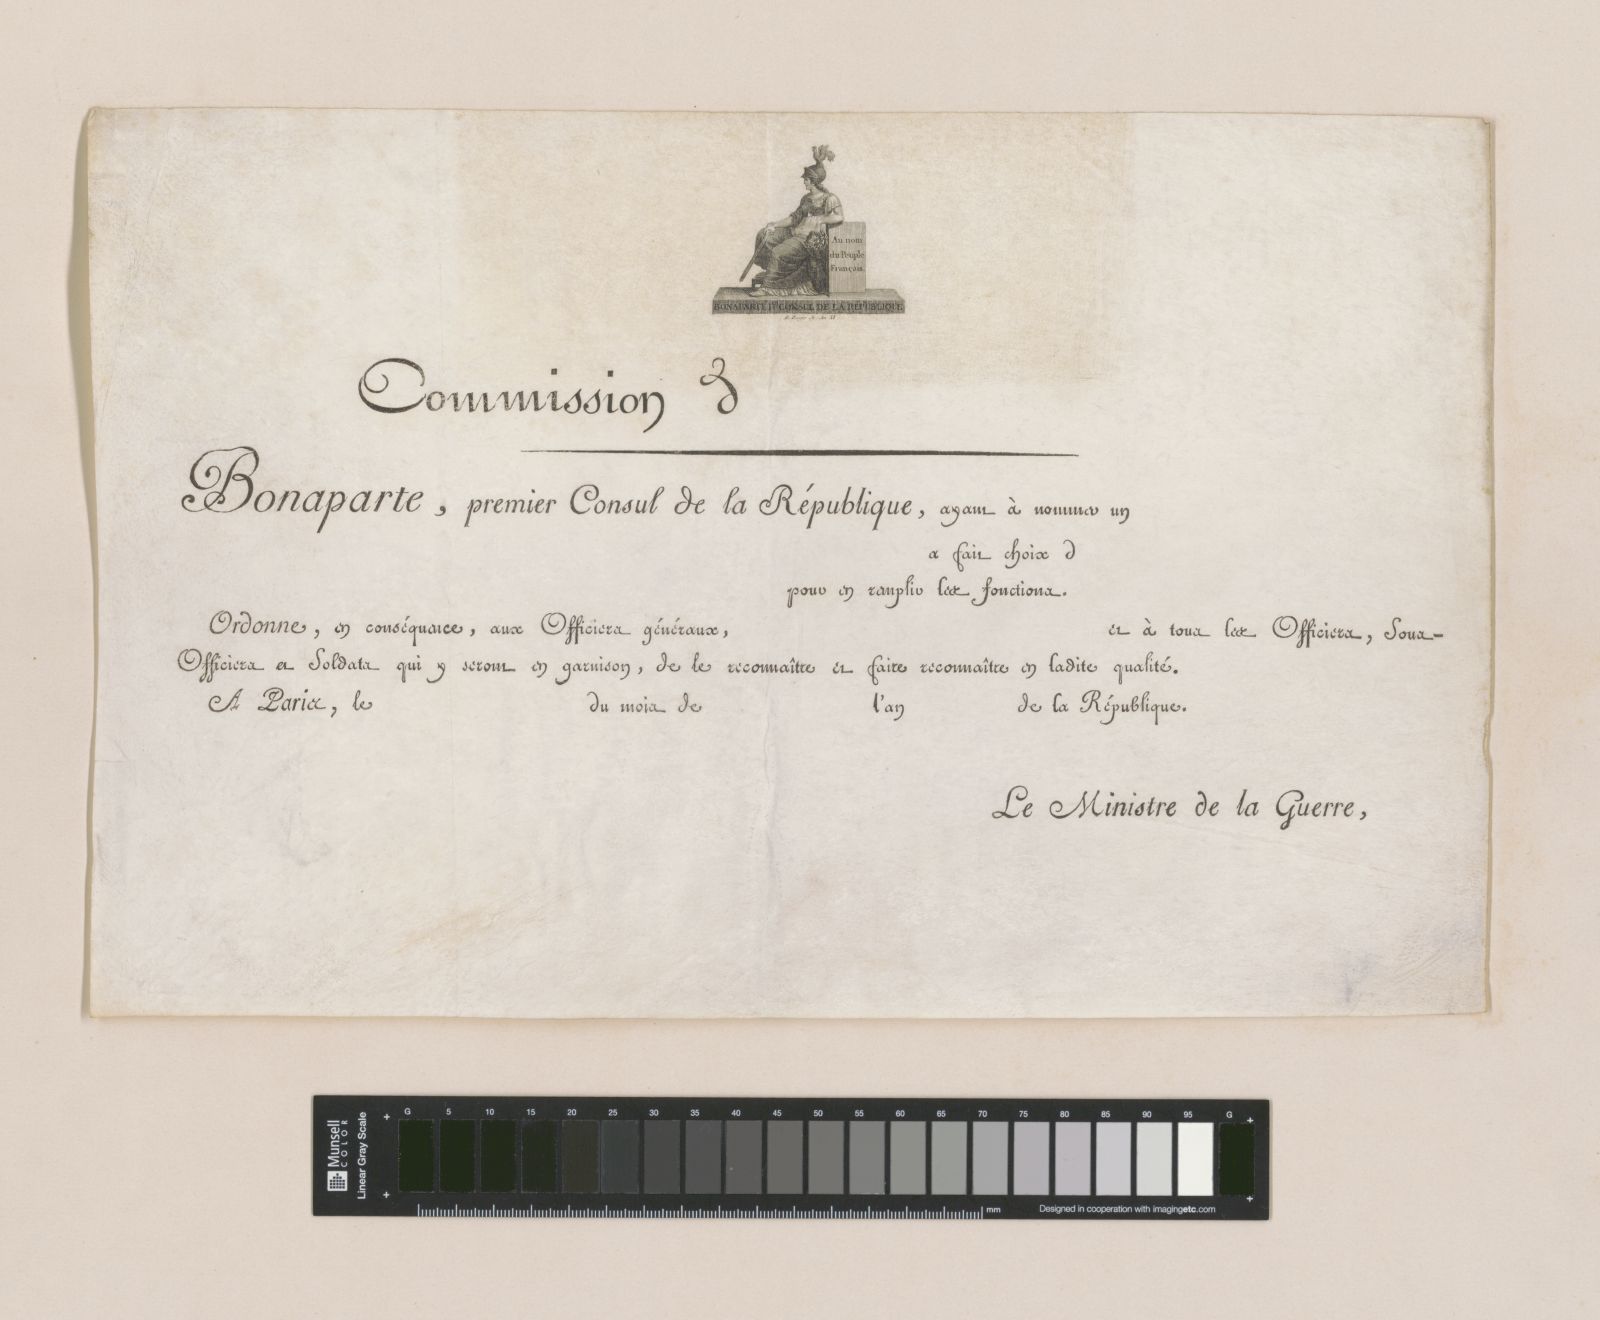 Au nom
du Peuple
Français.
BONAPARTE 1er CONSUL DE LA RÉPUBLIQUE
Commission d
Bonaparte, premier Consul de la République, ayant à nommer un
a fait choix d
pour en remplir les fonctions.
Ordonne, en conséquence, aux Officiers généraux, et à tous les Officiers, Sous-
Officiers et Soldats qui y seront en garnison, de le reconnaître et faire reconnaître en ladite qualité.
A Paris, le du mois de l'an de la République.
Le Ministre de la Guerre,
Munsell
COLOR
Linear Gray Scale
G 5 10 15 20 25 30 35 40 45 50 55 60 65 70 75 80 85 90 95 G
mm
Designed in cooperation with imagingetc.com